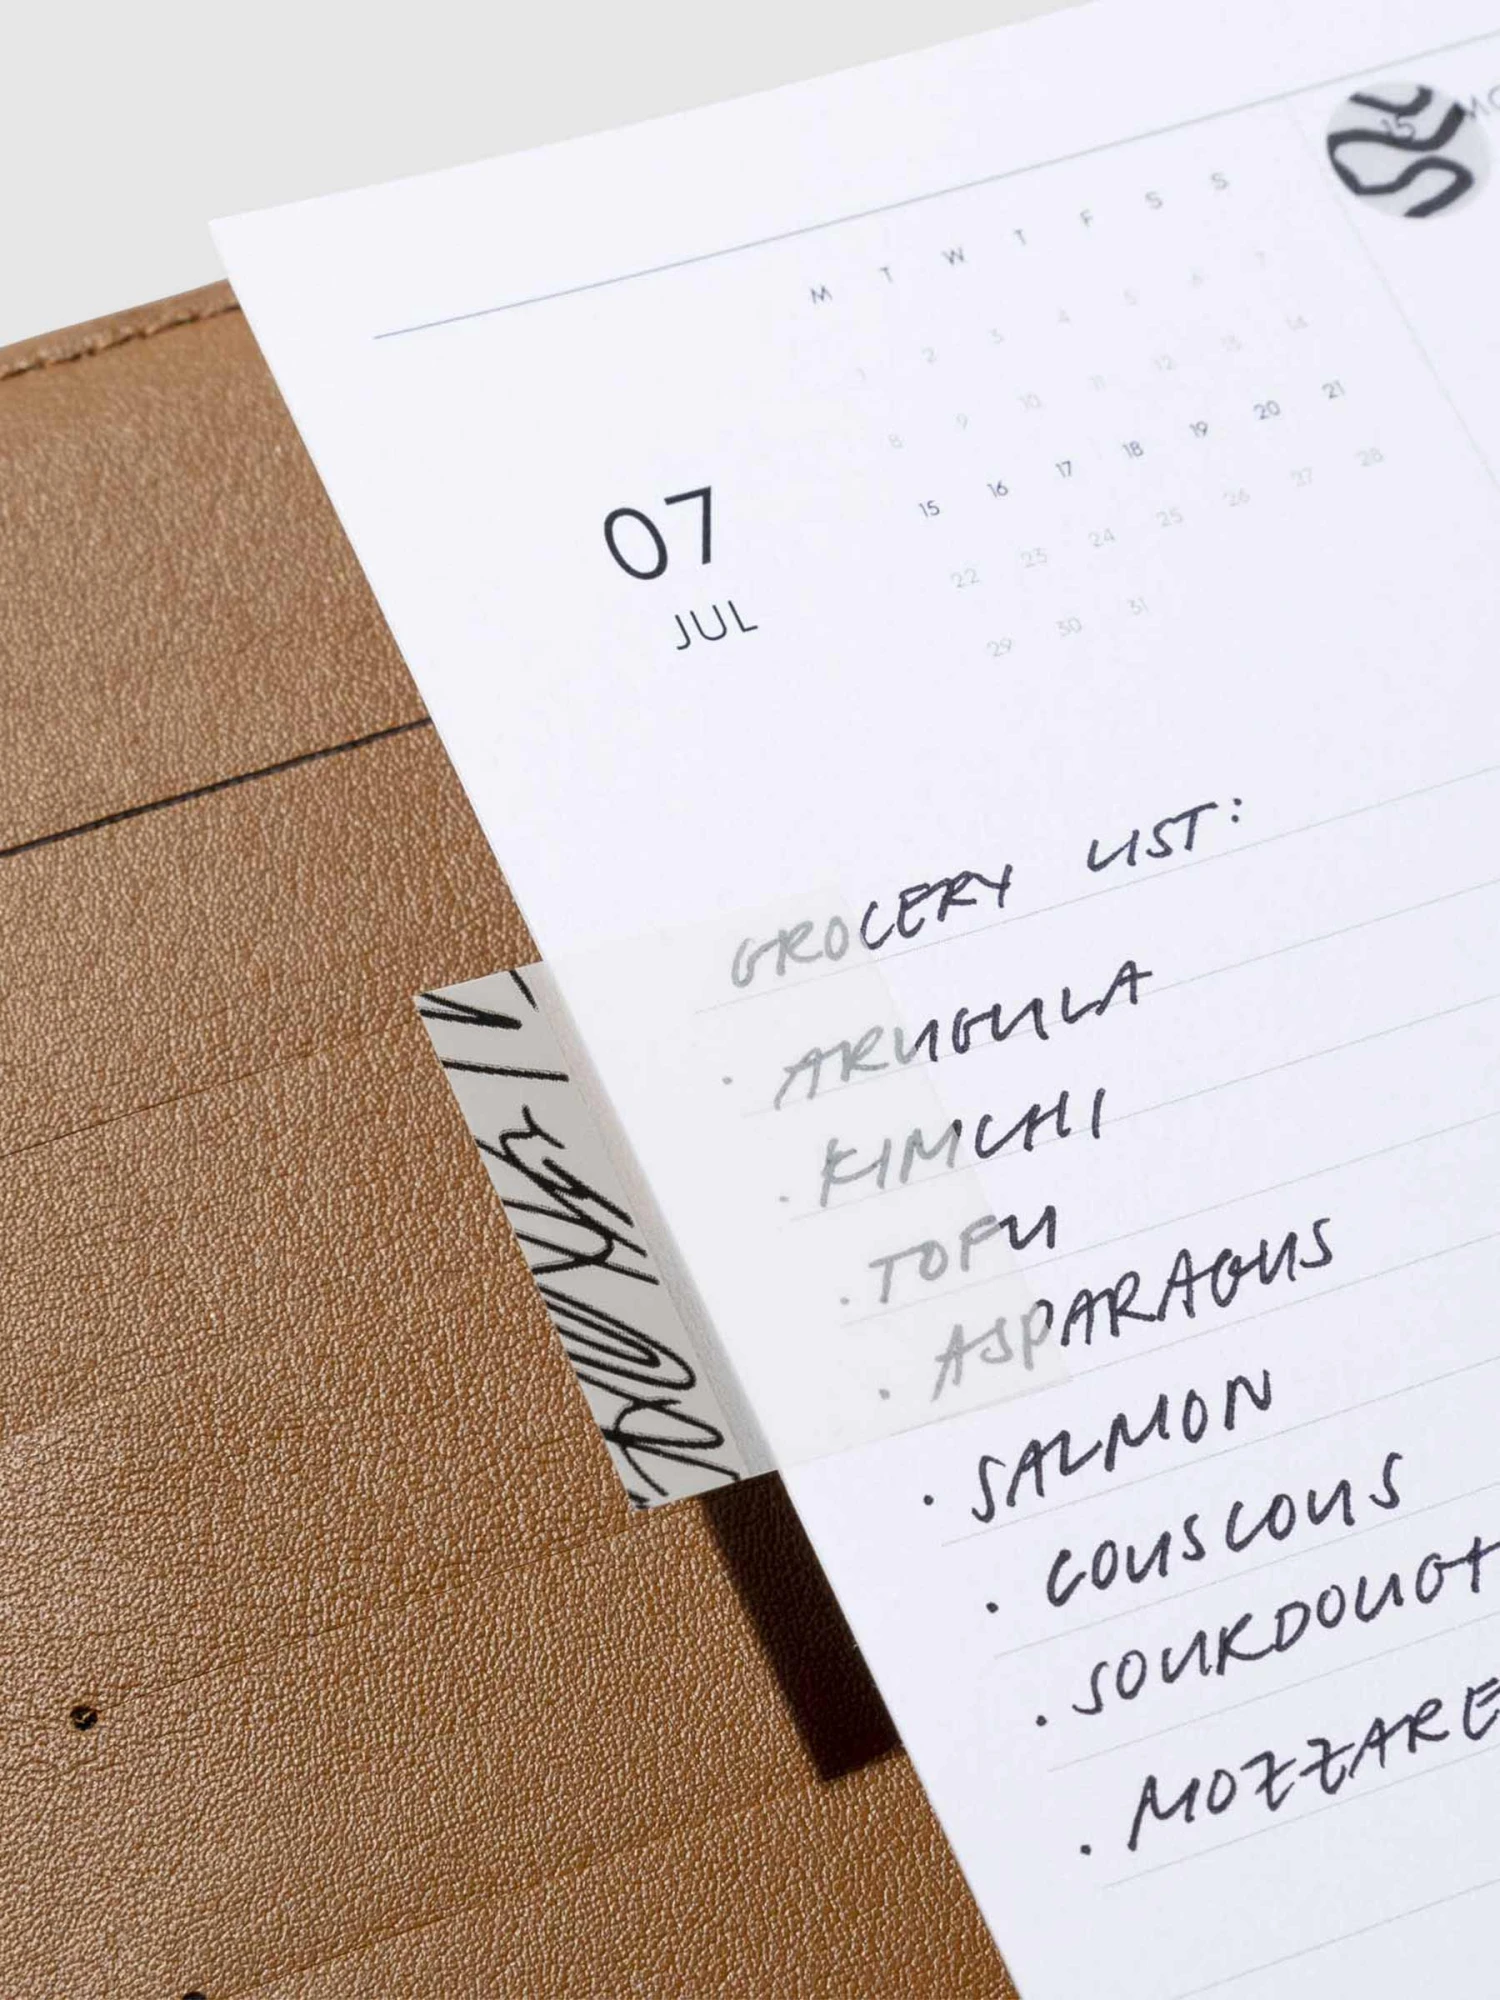 15 MO
M T W T F S S
1 2 3 4 5 6 7
8 9 10 11 12 13 14
15 16 17 18 19 20 21
22 23 24 25 26 27 28
29 30 31
07
JUL
GROCERY LIST:
· ARUGULA
· KIMCHI
· TOFU
· ASPARAGUS
· SALMON
· COUSCOUS
· SOURDOUGH
· MOZZARE